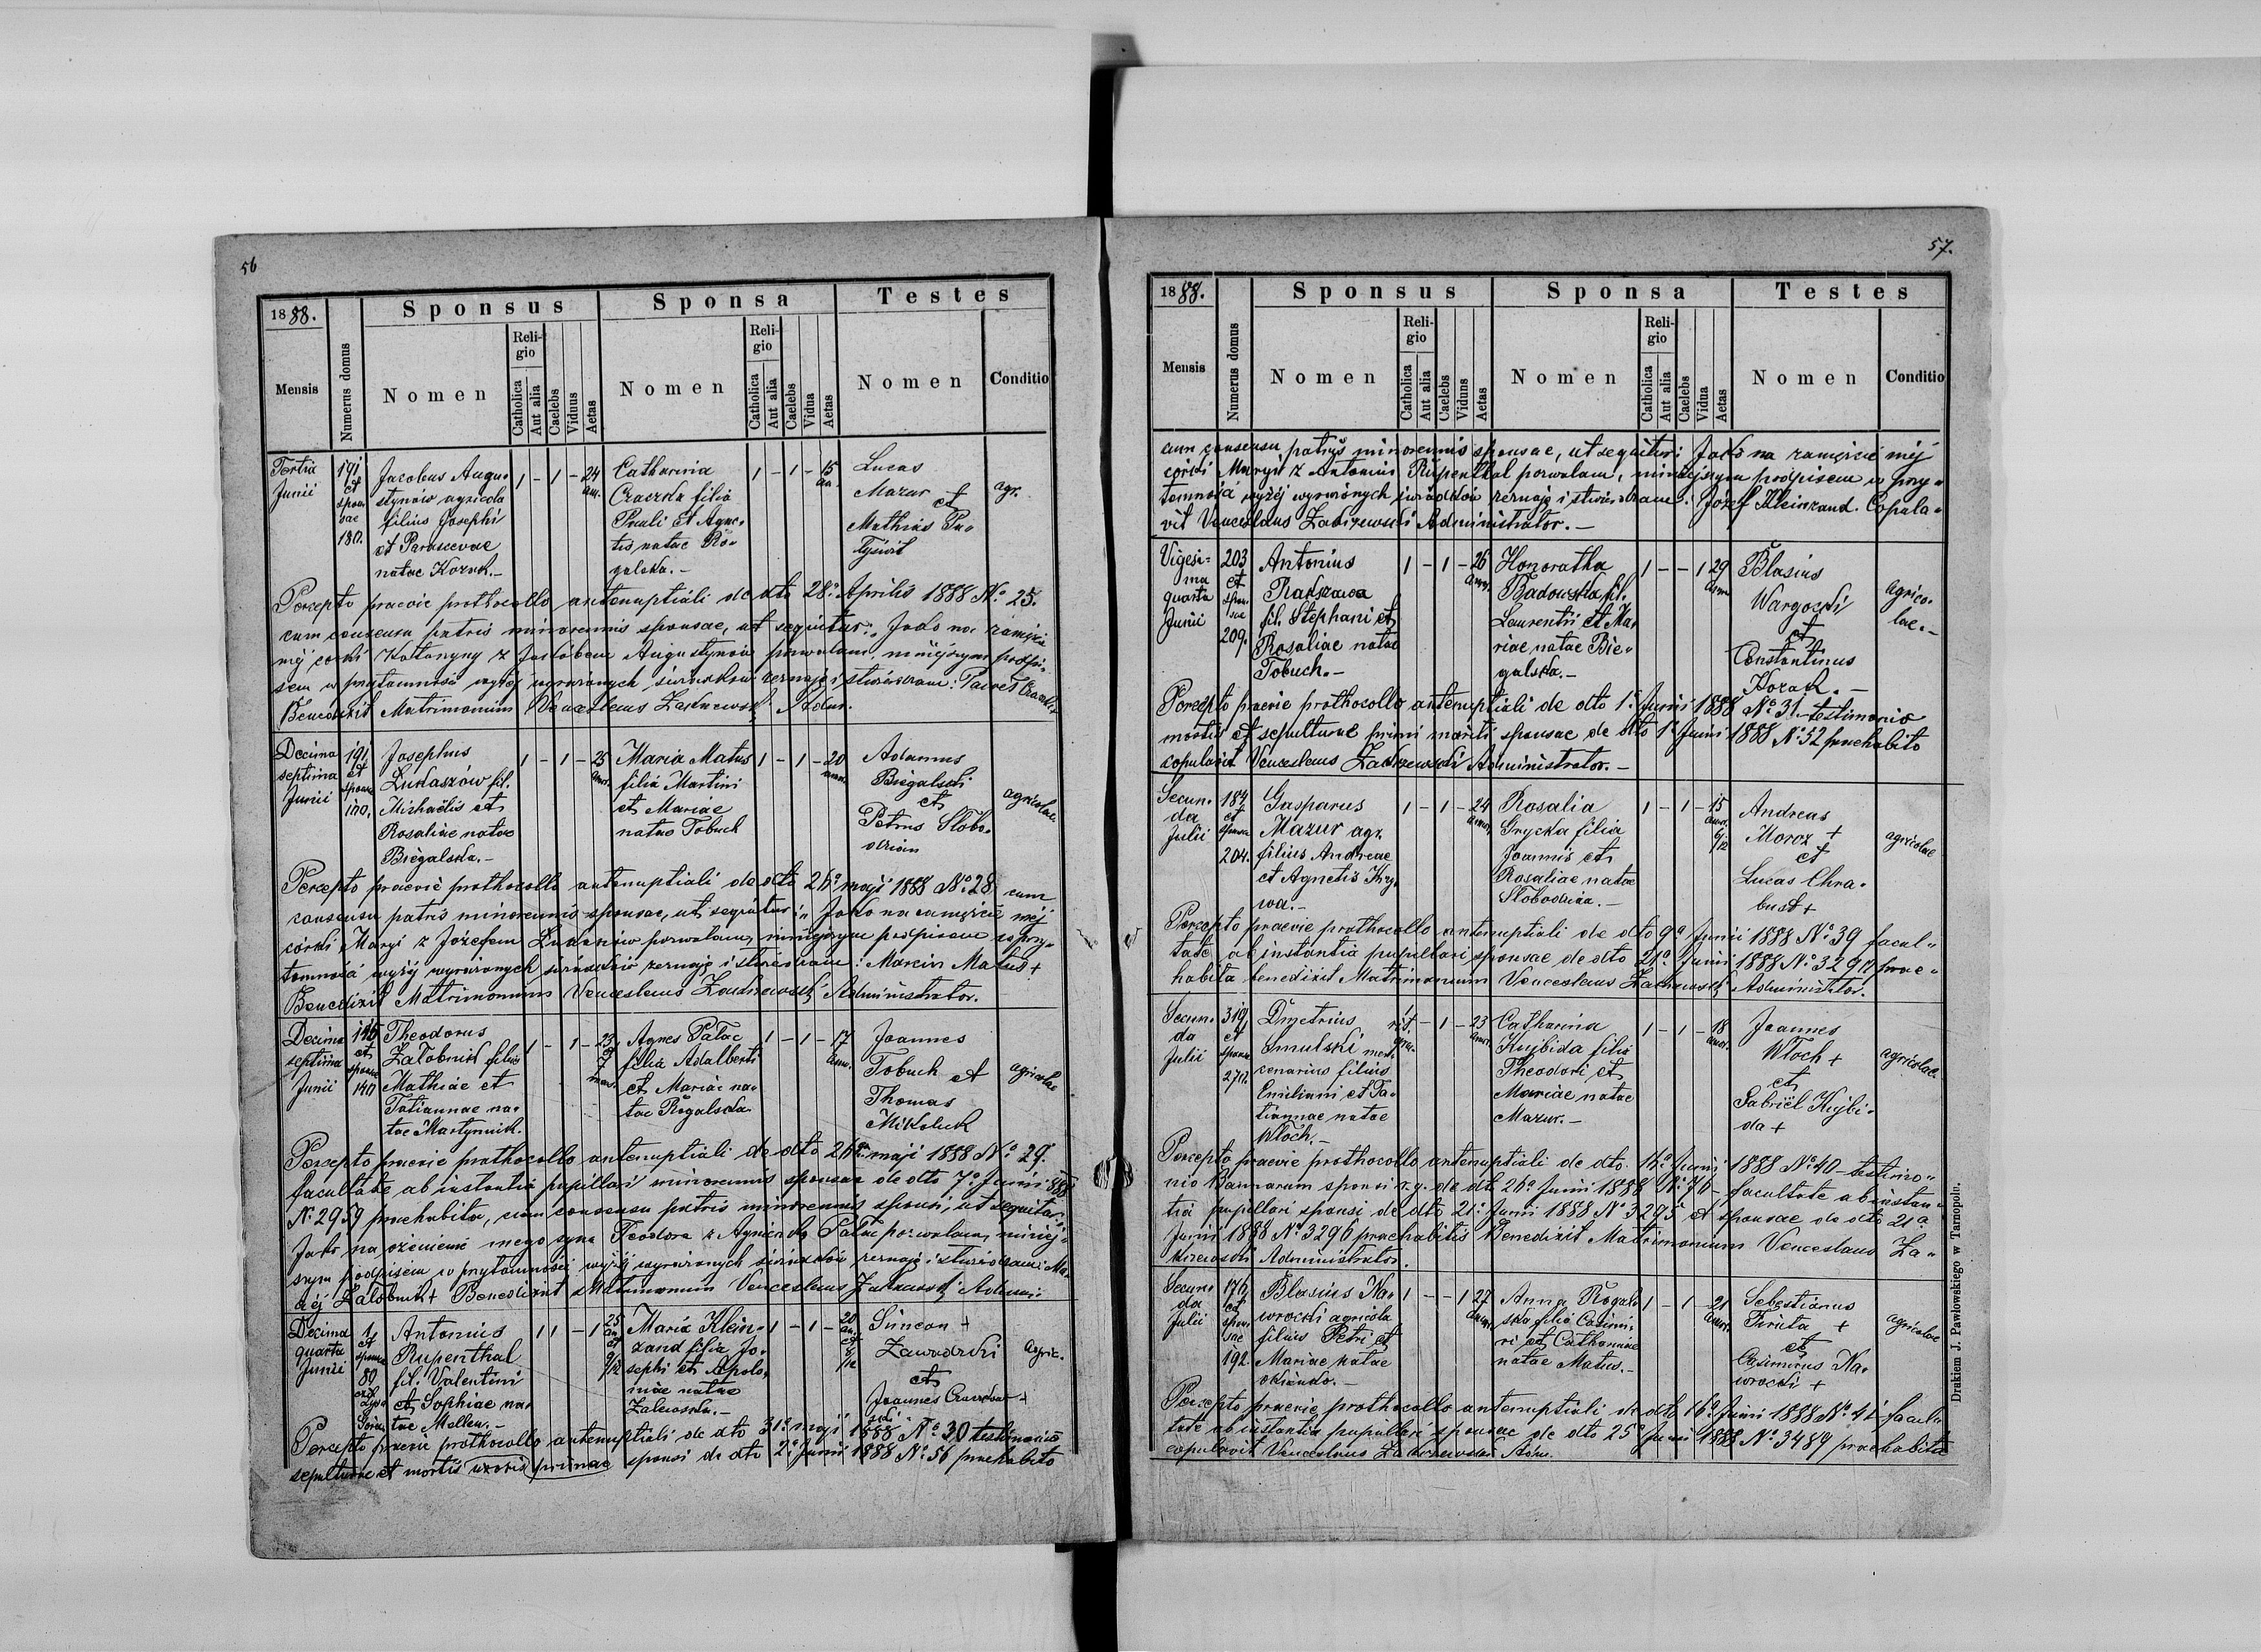 56
1888.
Sponsus
Sponsa
Testes
Mensis
Numerus domus
Nomen
Religio
Catholica
Aut alia
Caelebs
Viduus
Aetas
Nomen
Religio
Catholica
Aut alia
Caelebs
Vidua
Aetas
Nomen
Conditio
Tertia
Junii
191
et
spon
sae
180.
Jacobus Augu-
stynów agricola
filius Josephi
et Parascevae
natae Kozak.-
1 - 1 - 24
an.
Catharina
Czaczka filia
Pauli et Agne-
tis natae Ro-
galska.-
1 - 1 - 15
an.
Lucas
Mazur et
Mathias
agr.
Percepto praevie prothocollo antenuptiali de dto 28a Aprilis 1888 No 25.
cum consensu patris minorennis sponsae, ut sequitur: Jako na zamęźcie
mej córki Katarzyny z Jakóbem Augustynów pozwalam, niniejszym podpi-
sem w przytomności wyżéj wyrażonych świadków zeznaję i stwierdzam: Paweł Czaczka
Benedixit Matrimonium Venceslaus Zakrzewski Adm.
Decima
septima
Junii
191
et
sponsae
140.
Josephus
Łukaszów fil.
Michaëlis et
Rosaliae natae
Biegalska.-
1 - 1 - 25
ann.
Maria Matus
filia Martini
et Mariae
natae Tobuch
1 - 1 - 20
ann.
Adamus
Biegalski
et
Petrus Słobo-
dzian
agricolae
Percepto praevie prothocollo antenuptiali de dto 26a maji 1888 No 28 cum
consensu patris minorennis sponsae, ut sequitur: Jako na zamęźcie méj
córki Maryi z Józefem Łukaszów pozwalam, niniejszym podpisem w przy-
tomności wyżéj wyrażonych świadków zeznaję i stwierdzam: Marcin Matus +
Benedixit Matrimonium Venceslaus Zakrzewski Administrator.
Decima
septima
Junii
et
sponsae
140
Theodorus
Załobniuk filius
Mathiae et
Tatiannae na-
tae Martyniuk.
1 - 1 - 23
7
mens.
Agnes Pałac
filia Adalberti
et Mariae na-
tae Rogalska
1 - 1 - 17
ann.
Joannes
Tobuch et
Thomas
Mikoluk
agricolae
Percepto praevie prothocollo antenuptiali de dto 26a maji 1888 No 29.
facultate ab instantia pupillari minorennis sponsae de dto 7a Junii 888
No 2959 praehabita, cum consensu patris minorennis sponsi, ut sequitur:
Jako na ożenienie mego syna Teodora z Agnieszką Pałac pozwalam, niniej-
szym podpisem w przytomności wyżéj wyrażonych świadków zeznaję i stwierdzam: Ma-
ciéj Załobniuk + Benedixit Matrimonium Venceslaus Zakrzewski Admin.
Decima
quarta
Junii
1
et
sponsae
89
Antonius
Rupenthal
fil. Valentini
et Sophiae na-
tae Mellen.-
1 1 - 1 25
an.
et
9/12
Maria Klein-
zand filia Jo-
sephi et Apolo-
niae natae
Zaleoska.-
1 - 1 - 20
an.
et
/12
Simeon +
Zawadzki
et
Joannes
agric.
Percepto praevie prothocollo antenuptiali de dto 31a maji 1888 No 30 testimonio
sepulturae et mortis uxoris primae sponsi de dto 2a Junii 1888 No 56 praehabito
57.
1888.
Sponsus
Sponsa
Testes
Mensis
Numerus domus
Nomen
Religio
Catholica
Aut alia
Caelebs
Viduus
Aetas
Nomen
Religio
Catholica
Aut alia
Caelebs
Vidua
Aetas
Nomen
Conditio
cum consensu patris minorennis sponsae, ut sequitur: Jako na zamęźcie méj
córki Maryi z Antonim Rupenthal pozwalam, niniejszym podpisem w przy-
tomności wyżéj wyrażonych świadków zeznaję i stwierdzam: Józef Kleinzand. Copula-
vit Venceslaus Zakrzewski Administrator.-
Vigesi-
ma
quarta
Junii
203
et
spon-
sae
209.
Antonius
Radszawa
fil. Stephani et
Rosaliae natae
Tobuch.-
1 - 1 - 26
ann.
Honoratha
Badowska fil.
Laurentii et Ma-
riae natae Bie-
galska.-
1 - - 1 29
ann.
Blasius
Wargocki
et
Constantinus
Kozak.-
agrico-
lae.-
Percepto praevie prothocollo antenuptiali de dto 1a Junii 1888 No 31 testimonio
mortis et sepulturae primi mariti sponsae de dto 1a Junii 1888 No 52 praehabito
copulavit Venceslaus Zakrzewski Administrator.-
Secun-
da
Julii
184
et
sponsae
204.
Gasparus
Mazur agr.
filius Andreae
et Agnetis Kry-
wa.-
1 - 1 - 24
ann.
Rosalia
Grycka filia
Joannis et
Rosaliae natae
Słobodzian.-
1 - 1 - 15
ann.
6/12
Andreas
Moroz +
et
Lucas Chra-
bust +
agricolae
Percepto praevie prothocollo antenuptiali de dto 9a Junii 1888 No 39 facul-
tate ab instantia pupillari sponsae de dto 21a Junii 1888 No 3297 prae-
habita benedixit Matrimonium Venceslaus Zakrzewski Administrator.
Secun-
da
Julii
319
et
sponsae
270.
Dmetrius
Smulski mer-
cenarius filius
Emiliani et Ta-
tiannae natae
Włoch.-
rit.
gr.
- 1 - 23
ann.
Catharina
Kujbida filia
Theodori et
Mariae natae
Mazur.-
1 - 1 - 18
ann.
Joannes
Włoch +
et
Gabriël Kujbi-
da +
agricolae.
Percepto praevie prothocollo antenuptiali de dto. 16a Junii 1888 No 40 - testimo-
nio Bannorum sponsi r.g. de dto 26a Junii 1888 No 76 - facultate ab instan-
tia pupillari sponsi de dto 21a Junii 1888 No 3295 et sponsae de dto 21a
Junii 1888 No 3296 praehabitis Benedixit Matrimonium Venceslaus Za-
krzewski Administrator.
Secun-
da
Julii
176
et
spon-
sae
192.
Blasius Na-
wrocki agricola
filius Petri et
Mariae natae
1 - - 1 27
ann.
Anna Rogal-
ska filia Casimi-
ri et Catharinae
natae Matus.-
1 - 1 - 21
ann.
Sebastianus
Firuta +
et
Casimirus Na-
wrocki +
agricolae
Percepto praevie prothocollo antenuptiali de dto 16a Junii 1888 No 41 facul-
tate ab instantia pupillari sponsae de dto 25a Junii 1888 No 3489 praehabita
copulavit Venceslaus Zakrzewski Adm.
Drukiem J. Pawłowskiego w Tarnopolu.